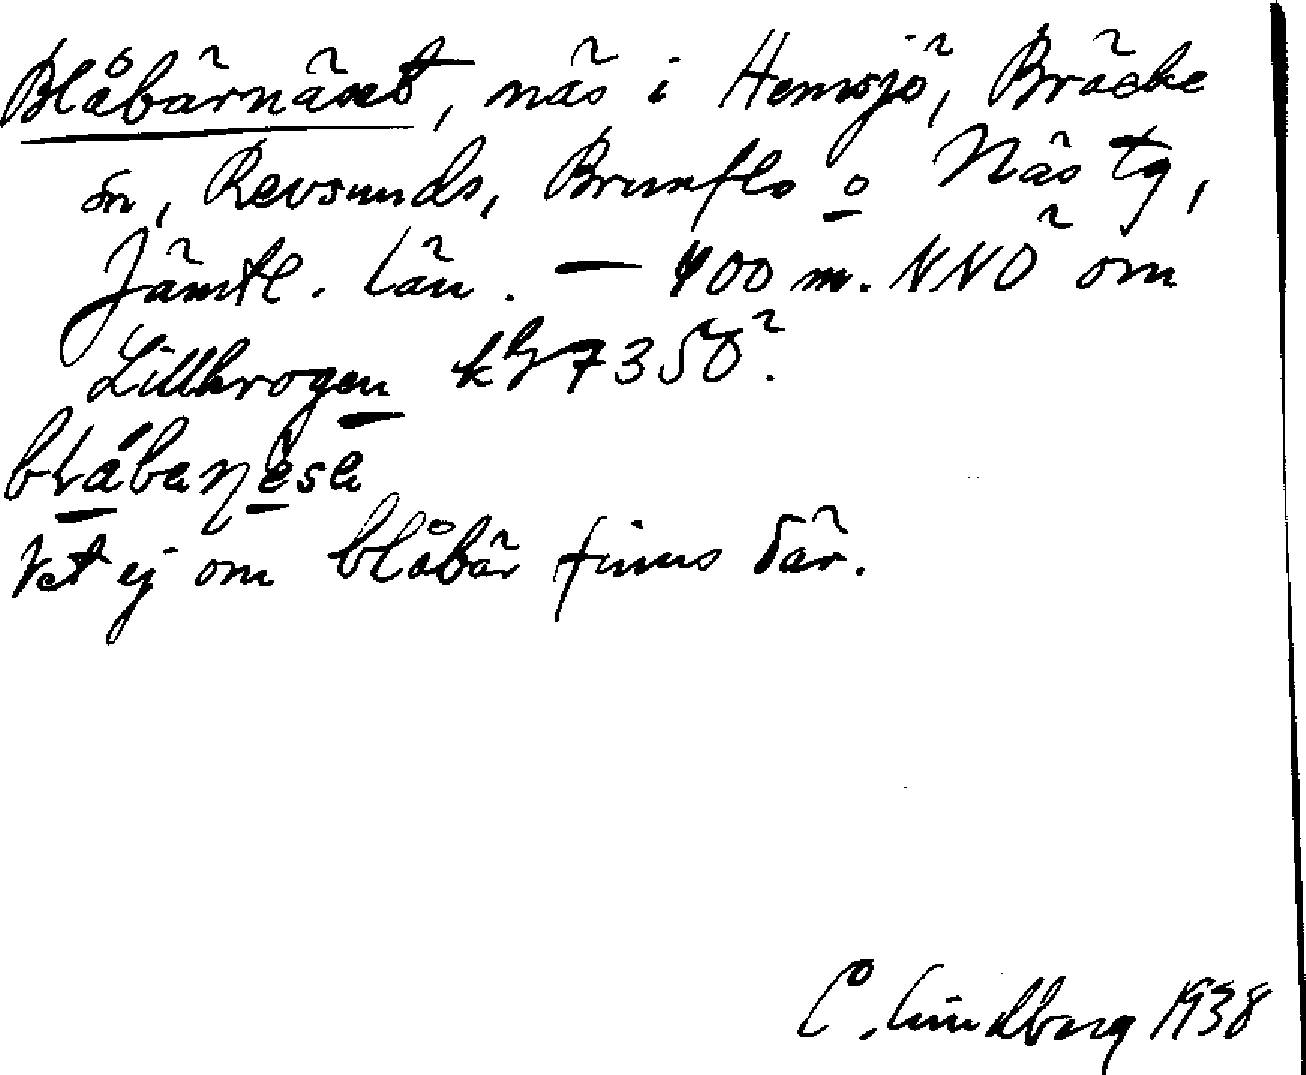 Blåbärnäset, näs i Hemsjö, Bräcke
sn, Revsunds, Brunflo o Näs tg,
Jämtl. län. — 400 m. NNÖ om
Lillkrogen
Vet ej om blåbär finns där.
C. Lindberg 1938